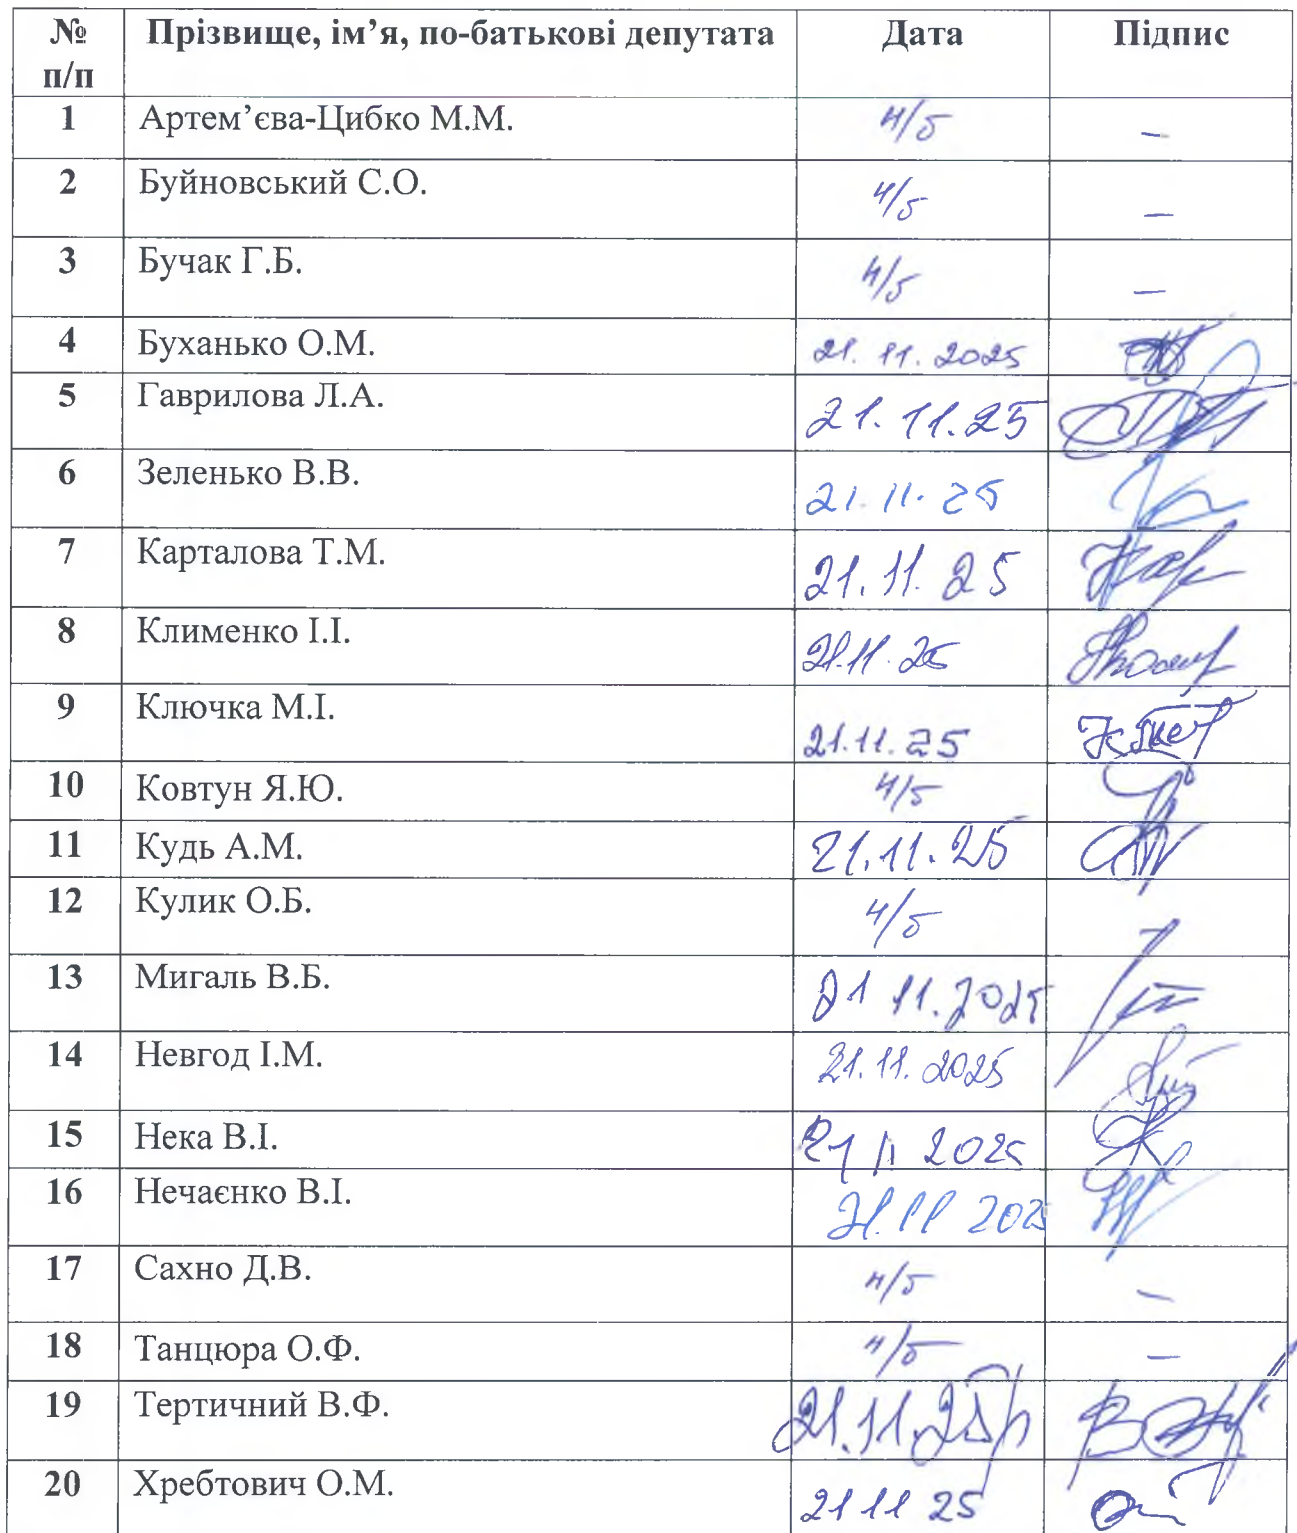 № п/п Прізвище, ім’я, по-батькові депутата Дата Підпис
1 Артем’єва-Цибко М.М. н/б –
2 Буйновський С.О. н/б –
3 Бучак Г.Б. н/б –
4 Буханько О.М. 21.11.2025
5 Гаврилова Л.А. 21.11.25
6 Зеленько В.В. 21.11.25
7 Карталова Т.М. 21.11.25
8 Клименко І.І. 21.11.25
9 Ключка М.І. 21.11.25
10 Ковтун Я.Ю. н/б
11 Кудь А.М. 21.11.25
12 Кулик О.Б. н/б
13 Мигаль В.Б. 21 11.2025
14 Невгод І.М. 21.11.2025
15 Нека В.І. 21 11 2025
16 Нечаєнко В.І. 21.11 2025
17 Сахно Д.В. н/б –
18 Танцюра О.Ф. н/б –
19 Тертичний В.Ф. 21.11.25р
20 Хребтович О.М. 21 11 25